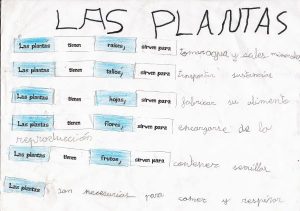 LAS PLANTAS
Las plantas tienen raíces, sirven para tomar agua y sales minerales
Las plantas tienen tallos, sirven para transportar sustancias
Las plantas tienen hojas, sirven para fabricar su alimento
Las plantas tienen flores, sirven para encargarse de la
reproducción
Las plantas tienen frutos, sirven para contener semillas
Las plantas son necesarias para comer y respirar